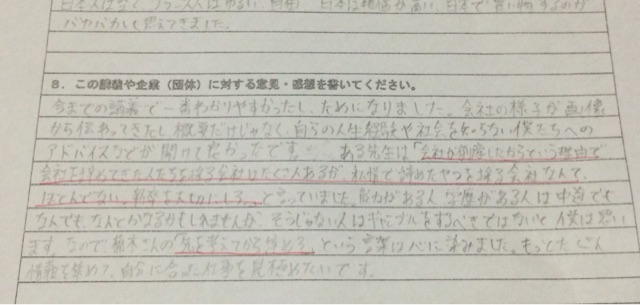 日本人はなく、フランス人はゆるい、自由 日本は物価が高い、日本で買い物するのが
バカバカしく思えてきました。
8. この講義や企業（団体）に対する意見・感想を書いてください。
今までの講義で一番わかりやすかったし、ためになりました。会社の様子が画像
から伝わってきたし、概要だけじゃなく、自らの人生経験や社会を知らない僕たちへの
アドバイスなどが聞けて良かったです。 ある先生は「会社が倒産したからという理由で
会社を辞めてきた人たちを採る会社はたくさんあるが、私情で辞めたやつを採る会社なんて、
ほとんどない。新卒を大切にしろ。」と言っていました。能力がある人、学歴がある人は中途でも
なんでも、なんとかなるかもしれませんが、そうじゃない人はギャンブルをするべきではないと僕は思い
ます。なので 本さんの「先を考えてから辞めろ。」という言葉は心に染みました。もってたくさん
情報を集めて、自分に合った仕事を見極めたいです。